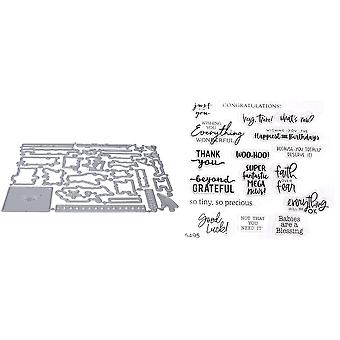 just
for
you
CONGRATULATIONS!
hey, there!
what's new?
WISHING YOU
Everything
WONDERFUL
WISHING YOU THE
Happiest OF Birthdays
THANK
YOU
WOO-HOO!
BECAUSE YOU TOTALLY
DESERVE IT!
beyond
GRATEFUL
SUPER
fantastic
MEGA
news!
faith
over
fear
so tiny, so precious
everything
WILL BE
OK
Good
Luck!
NOT THAT
YOU
NEED IT
Babies
are a
Blessing